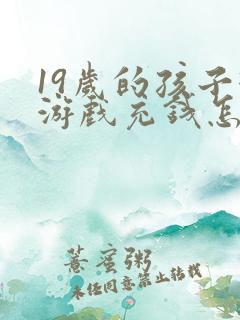 19岁的孩子
游戏充钱怎
薏蜜粥
未经同意禁止转载